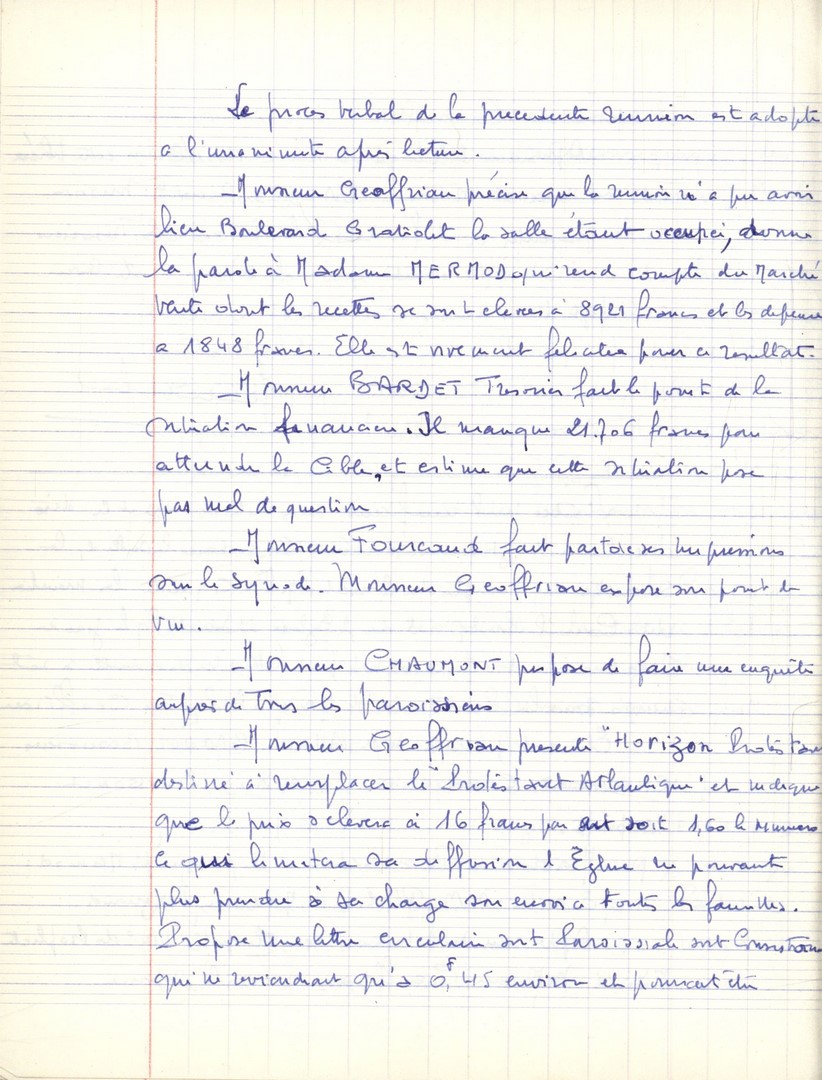 Le proces verbal de la precedente reunion est adopte
a l'unanimite après lecture.
-Monsieur Geoffriau précise que la reunion n'a pu avoir
lieu Boulevard Gratiolet la salle étant occupée, donne
la parole à Madame MERMOD qui rend compte du Marché
Vente dont les recettes se sont elevees à 8921 francs et les depenses
a 1848 francs. Elle est vivement felicitee pour ce resultat.
-Monsieur BARDET Tresorier fait le point de la
situation financiere. Il manque 21.706 francs pour
atteindre la Cible, et estime que cette situation pose
pas mal de question
-Monsieur Fourcaud fait part de ses impressions
sur le Synode. Monsieur Geoffriau expose son point de
vue.
-Monsieur CHAUMONT propose de faire une enquête
aupres de Tous les paroissiens
-Monsieur Geoffriau presente "Horizon Protestant
destiné à remplacer le "Protestant Atlantique" et indique
que le prix s'elevera à 16 francs par an soit 1,60 le numero
ce qui limitera sa diffusion l'Église ne pouvant
plus prendre à sa charge son envoi a toutes les familles.
Propose une lettre circulaire soit Paroissiale soit Consistoriale
qui ne reviendrait qu'à 0,F45 environ et pourrait être